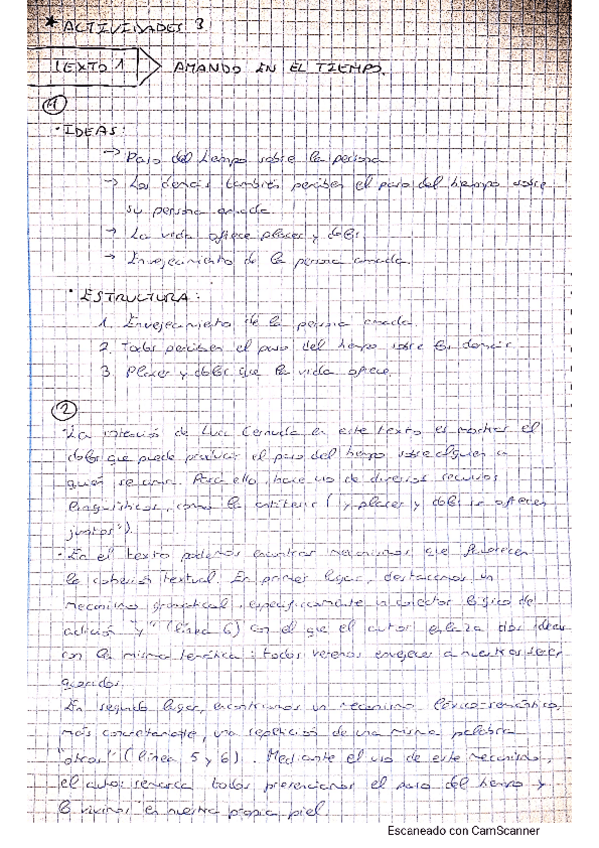 * ACTIVIDADES 3
TEXTO 1 AMANDO EN EL TIEMPO.
1
· IDEAS:
→ Paso del tiempo sobre la persona
→ Los demás también perciben el paso del tiempo sobre
su persona amada.
→ La vida ofrece placer y dolor.
→ Envejecimiento de la persona amada.
· ESTRUCTURA:
1. Envejecimiento de la persona amada.
2. Todos perciben el paso del tiempo sobre los demás
3. Placer y dolor que la vida ofrece.
2
· La intención de Luis Cernuda en este texto es mostrar el
dolor que puede producir el paso del tiempo sobre alguien a
quien se ama. Para ello, hace uso de diversos recursos
lingüísticos, como la antítesis ("y placer y dolor se ofrecen
juntos").
· En el texto podemos encontrar mecanismos que favorecen
la cohesión textual. En primer lugar, destacamos un
mecanismo gramatical, específicamente un conector lógico de
adición "y" (línea 6) con el que el autor enlaza dos ideas
con la misma temática: todos vemos envejecer a nuestros seres
queridos.
En segundo lugar, encontramos un mecanismo léxico-semántico,
más concretamente, una repetición de una misma palabra
"otros" (línea 5 y 6). Mediante el uso de este mecanismo,
el autor remarca todos presenciamos el paso del tiempo y
lo vivimos en nuestra propia piel.
Escaneado con CamScanner